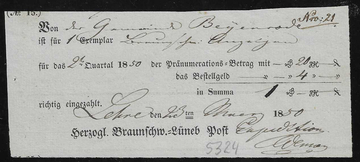 (No. 15.)
Nro: 21
Von der Gemeinde Beyenrode
ist für 1 Exemplar Braunschw. Anzeigen
für das 2te Quartal 1850 den Pränumerations-Betrag mit „ 20 „
das Bestellgeld „ 4 „
in Summa 1 „ 2 „
richtig eingezahlt. Lehre den 23ten März 1850
Herzogl. Braunschw.-Lüneb Post Expedition
5324